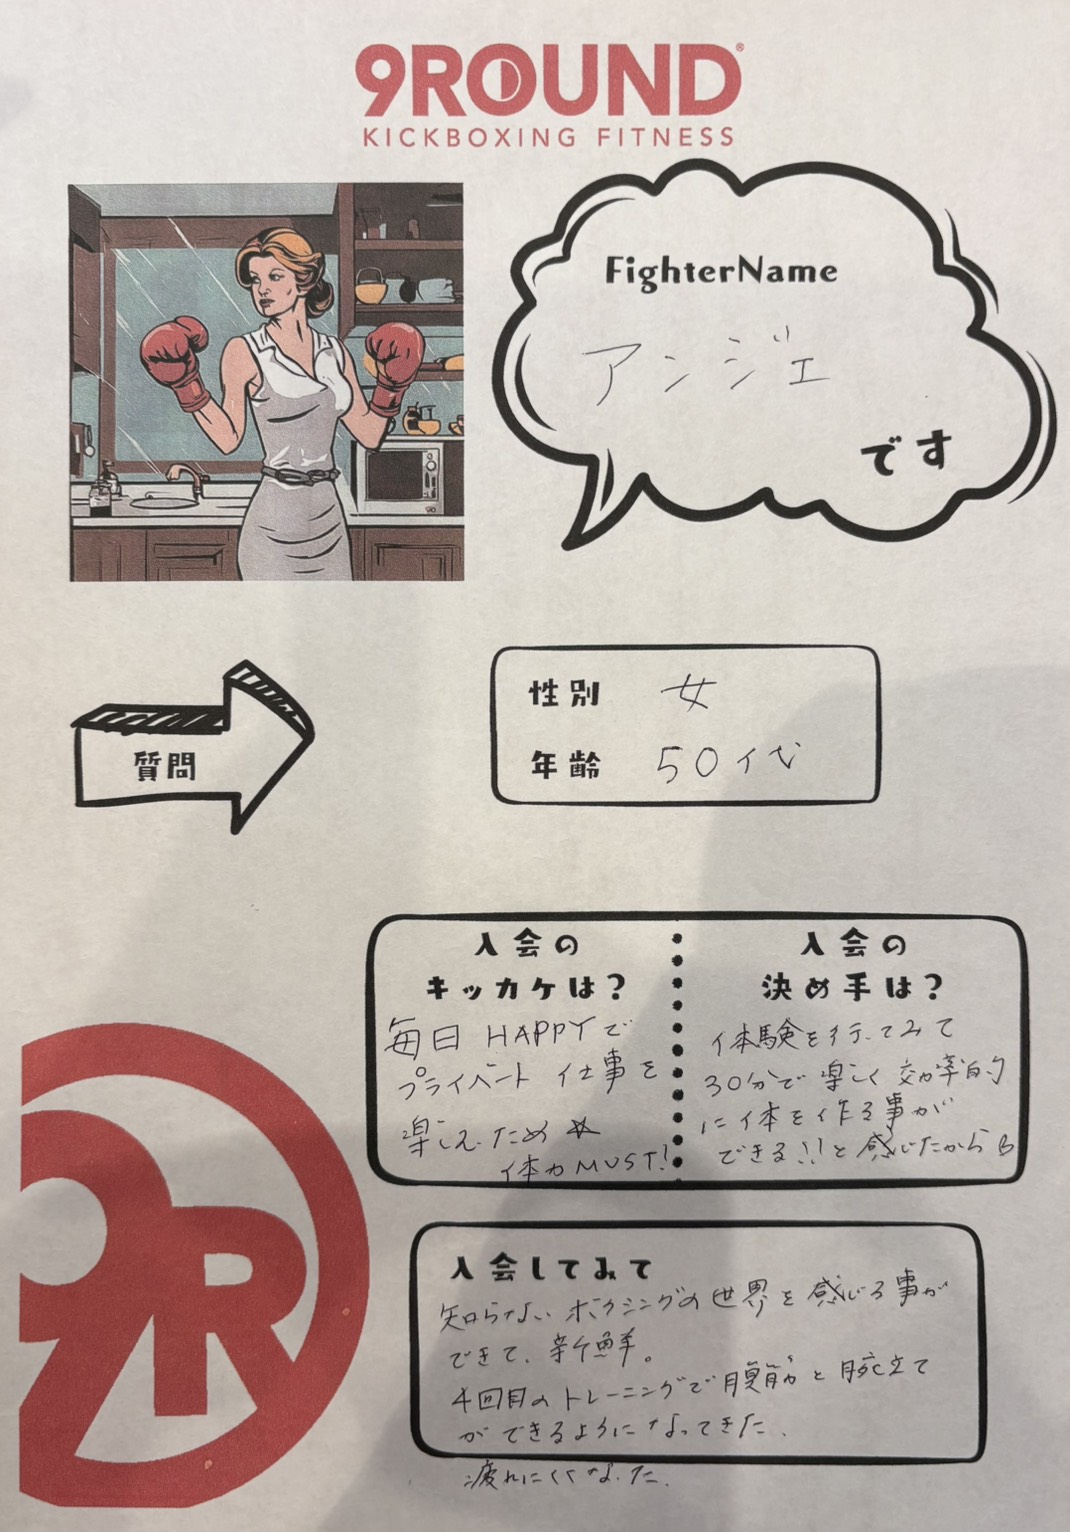 9ROUND®
KICKBOXING FITNESS
FighterName
アンジェ
です
質問
性別 女
年齢 50代
入会の
キッカケは?
毎日 HAPPYで
プライベート 仕事を
楽しむため☆
体力MUST!
入会の
決め手は?
体験を行ってみて
30分で楽しく効率的
に体を作る事が
できる!!と感じたから
入会してみて
知らないボクシングの世界を感じる事が
できて、新鮮。
4回目のトレーニングで腹筋と腕立て
ができるようになってきた.
疲れにくくなった.
R